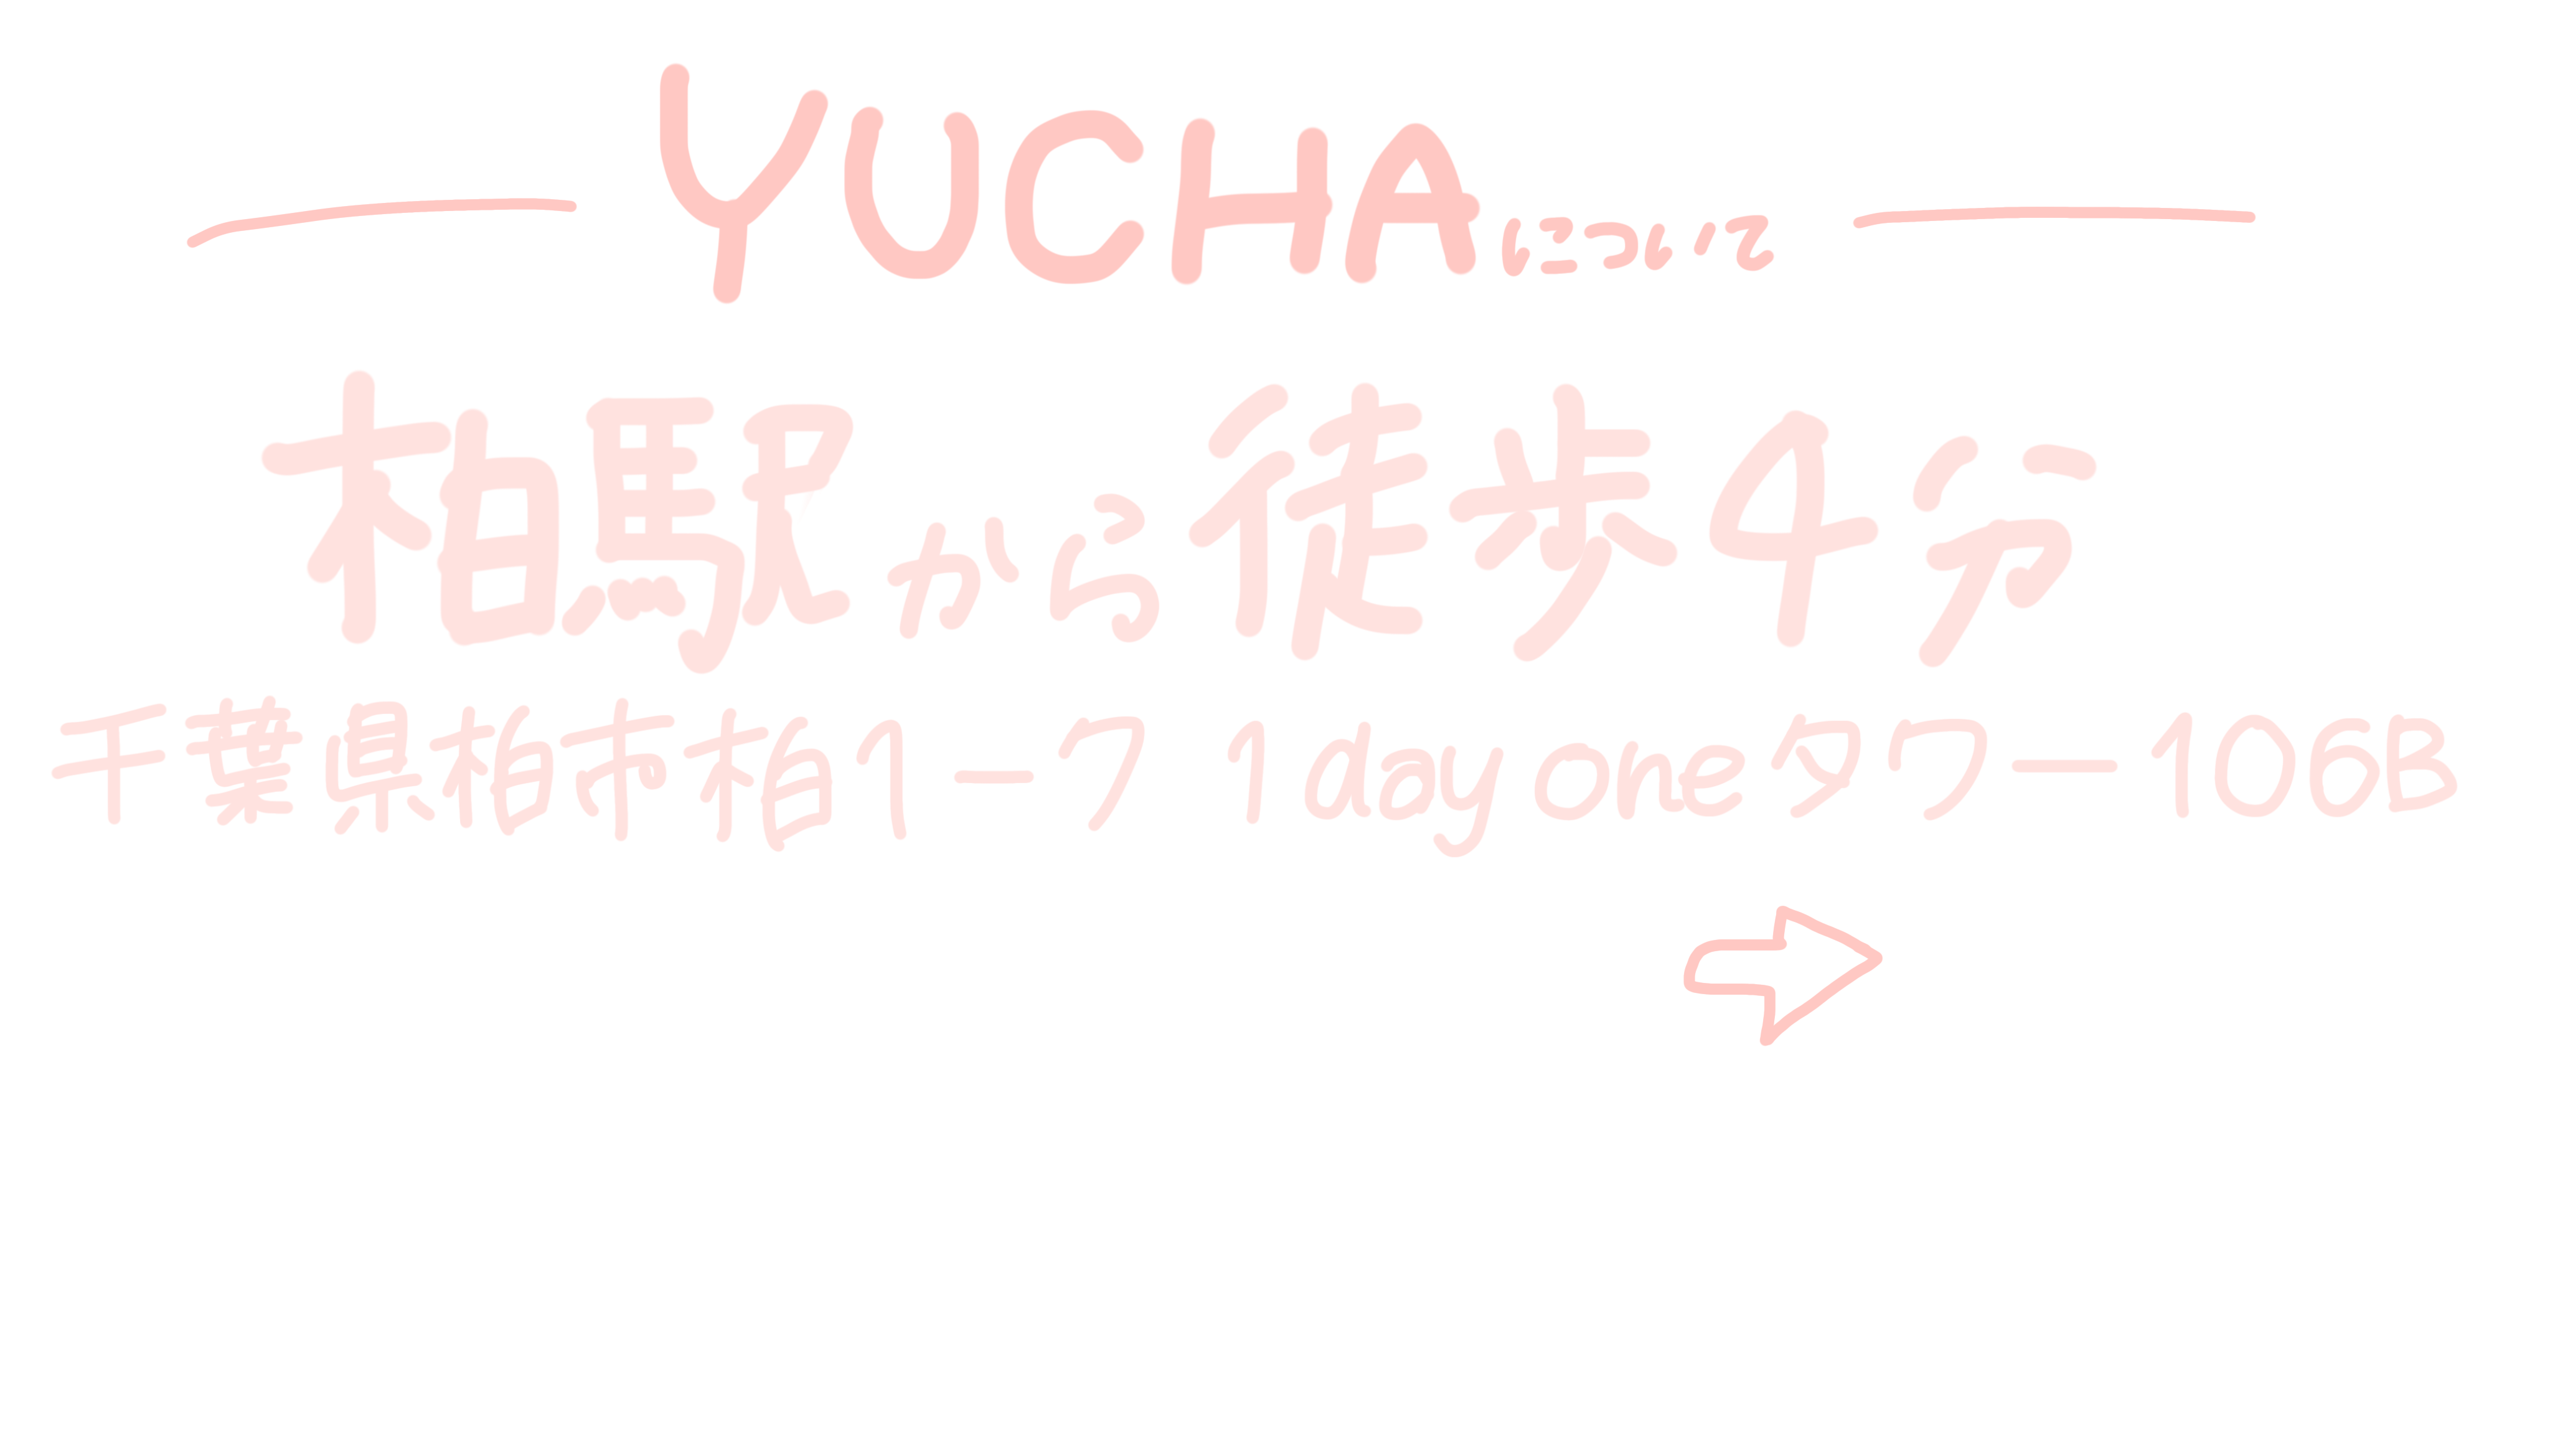 YUCHAについて
柏駅から徒歩4分
千葉県柏市柏1-7 1 day oneタワー106B